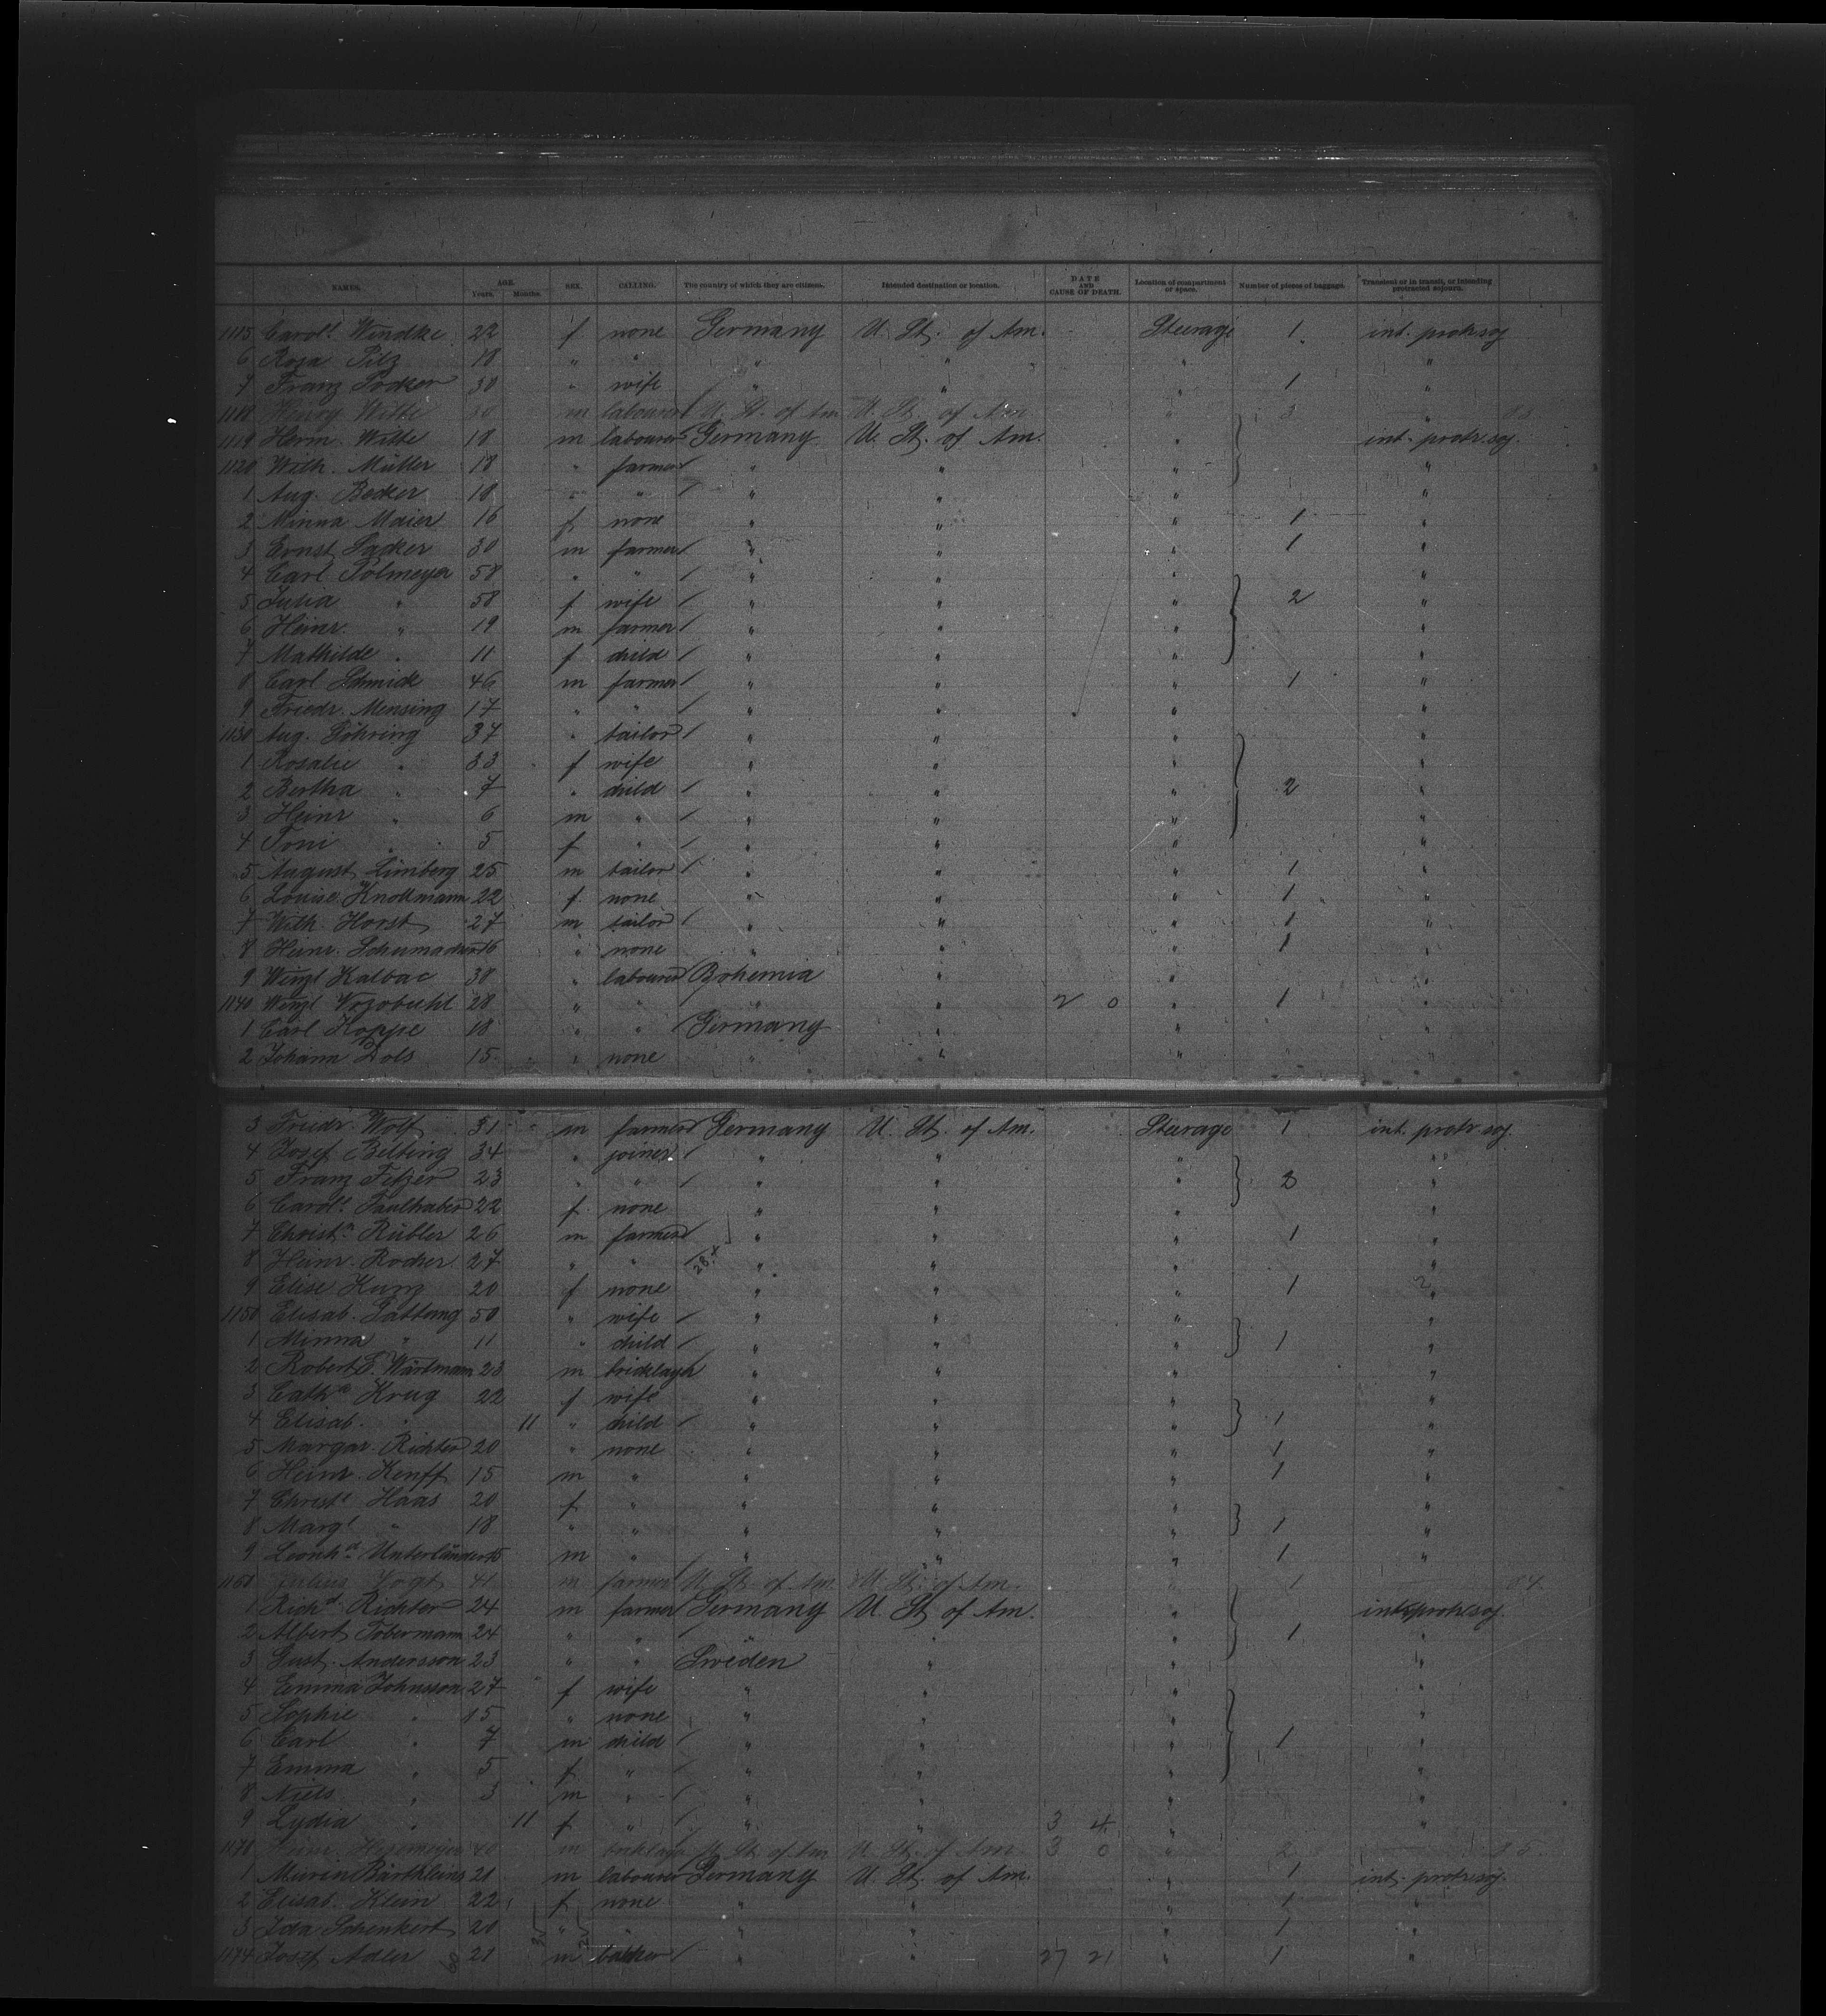 NAMES. AGE. Years. Months. SEX. CALLING. The country of which they are citizens. Intended destination or location. DATE AND CAUSE OF DEATH. Location of compartment or space. Number of pieces of baggage. Transient or in transit, or intending protracted sojourn.
1115 Carol. Windtke 22 f none Germany U. St. of Am. Steerage 1 int. protr. soj
6 Rosa Pilz 18 " " " " " "
7 Franz 30 " wife " " " 1 "
1118 Henry Witte 30 m labourer U. St. of Am U. St. of Am " 3 " 83
1119 Herm. Witte 18 m labourer Germany U. St. of Am. " int. protr. soj.
1120 Wilh. Müller 18 " farmer " " " "
1 Aug. Becker 18 " " " " " "
2 Minna Maier 16 f none " " " 1 "
3 Ernst Packer 30 m farmer " " " 1 "
4 Carl Polmeyer 58 " " " " " "
5 Julia " 58 f wife " " " 2 "
6 Heinr. " 19 m farmer " " " "
7 Mathilde " 11 f child " " " "
8 Carl Schmidt 46 m farmer " " " 1 "
9 Friedr. Mensing 17 " " " " " "
1130 Aug. Döhring 37 " tailor " " " "
1 Rosalie " 33 f wife " " " "
2 Bertha " 7 " child " " " 2 "
3 Heinr " 6 m " " " " "
4 Toni " 5 f " " " " "
5 August Limberg 25 m tailor " " " 1 "
6 Louise Knollmann 22 f none " " " 1 "
7 Wilh. Horst 27 m tailor " " " 1 "
8 Heinr. Schumacher 16 " none " " " 1 "
9 Wenzl Kalbac 38 " labourer Bohemia " " "
1140 Wenzl 28 " " " " 2 0 " 1 "
1 Carl Koppe 18 " " Germany " " "
2 Johann Dols 15 " none " " " "
3 Friedr. Wolf 31 m farmer Germany U. St. of Am. Steerage 1 int. protr. soj.
4 Josef Belting 34 " joiner " " " "
5 Franz Fetzer 23 " " " " " 2 "
6 Carol. Faulhaber 22 f none " " " "
7 Christn. Rübler 26 m farmer " " " 1 "
8 Heinr. Rocker 27 " " " " " "
9 Elise Kunz 20 f none " " " 1 "
1150 Elisab. Pattong 50 " wife " " " "
1 Minna " 11 " child " " " 1 "
2 Robert Wörtmann 23 m bricklayer " " " "
3 Cathe. Krug 22 f wife " " " "
4 Elisab. " 11 " child " " " 1 "
5 Margar. Richter 20 " none " " " 1 "
6 Heinr. Kenff 15 m " " " " 1 "
7 Christe. Haas 20 f " " " " "
8 Margt " 18 " " " " " 1 "
9 Leonhd. Unterländer 15 m " " " " 1 "
1160 Julius Vogt 41 m farmer U. St. of Am U. St. of Am. " 1 84
1 Richd. Richter 24 m farmer Germany U. St. of Am. " int. protr. soj.
2 Albert Tobermann 24 " " " " " 1 "
3 Gust. Andersson 23 " " Sweden " " "
4 Emma Johnsson 27 f wife " " " "
5 Sophie " 15 " none " " " "
6 Carl " 7 m child " " " 1 "
7 Emma " 5 f " " " " "
8 Niels " 3 m " " " " "
9 Lydia " 11 f " " " 3 4 " "
1170 Heinr. 40 m U. St. of Am U. St. of Am 3 0 " 2 85
1 Bärthleins 21 m labourer Germany U. St. of Am. " 1 int. protr. soj.
2 Elisab. Klein 22 f none " " " 1 "
3 Ida Schenkert 20 " " " " " 1 "
1174 Josef Adler 21 m backer " " 27 21 " 1 "